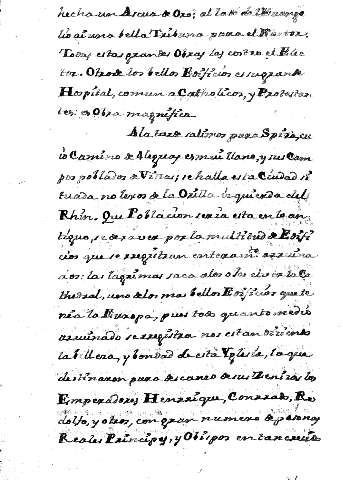 hecha un Ascua de Oro; al lado del Evange
lio ai una bella Tribuna para el Rector.
Todas estas grandes Obras las costeó el Elec
tor. Otro de los bellos Edificios es su grande
Hospital, comun a Catholicos, y Protestan
tes: es Obra magnifica.
A la tarde salimos para Spira, cu
io Camino de leguas es mui llano, y sus Cam
pos poblados de Viñas; se halla esta Ciudad si
tuada no lexos de la Orilla izquierda del
Rhin. Que Poblacion seria esta en lo an
tiguo, se dexa ver por la multitud de Edifi
cios que se registran enteramte. arruina
dos: las lagrimas saca a los ojos el ver la Ca
thedral, uno de los mas bellos Edificios que te
nia la Europa, pues todo quanto medio
arruinado se registra nos estan diciendo
la belleza, y bondad de esta Yglesia, la que
destinaron para descanso de sus Zenizas los
Emperadores Henrrique, Conrrado, Ro
dolfo, y otros, con gran numero de personas
Reales Principes, y Obispos en tan crecido